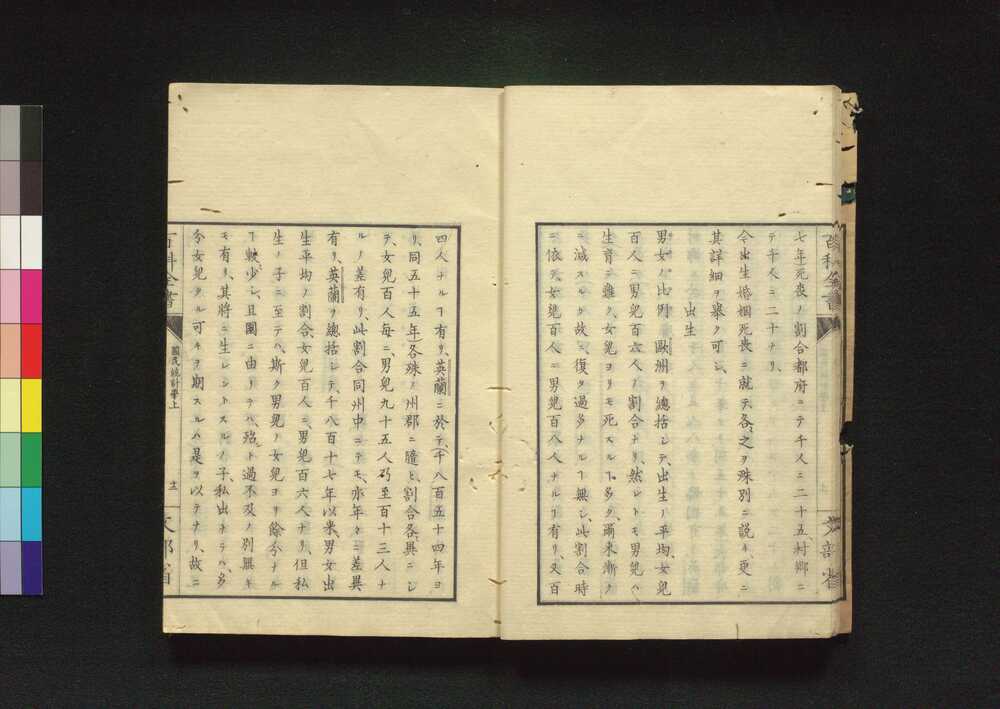 七年死喪ノ割合都府ニテ千人ニ二十五、村鄉ニ
テ千人ニ二十ナリ、
今出生婚姻死喪ニ就テ、各〻之ヲ殊別ニ説キ、更ニ
其詳細ヲ擧ク可シ、
出生
男女ノ比例 歐洲ヲ總括シテ、出生ノ平均、女兒
百人ニ男兒百六人ノ割合ナリ、然レトモ男兒ハ
生育シ難ク、女兒ヨリモ死スルヿ多ク、爾來漸ク
ニ減スルカ故ニ、復タ過多ナルヿ無シ、此割合時
ニ依テ、女兒百人ニ男兒百八人ナルヿ有リ、又百
四人ナルヿ有リ、英蘭ニ於テ、千八百五十四年ヨ
リ、同五十五年、各殊ノ州郡ニ隨ヒ、割合各異ニシ
テ、女兒百人每ニ、男兒九十五人乃至百十三人ナ
ルノ差有リ、此割合同州中ニテモ、亦年々ニ差異
有リ、英蘭ヲ總括シテ、千八百十七年以來、男女出
生平均ノ割合、女兒百人ニ、男兒百六人ナリ、但私
生ノ子ニ至テハ、斯ク男兒ノ女兒ヨリ餘分ナル
ヿ較少シ、且國ニ由リテハ、殆ト過不及ノ別無キ
モ有リ、其將ニ生レントスルノ子、私出ナラハ、多
分女兒タル可キヲ期スルハ是ヲ以テナリ、故ニ
百科全書
國民統計學上
十二
文部省
百科全書
文部省